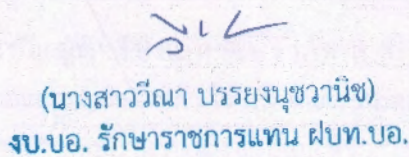 (นางสาววีณา บรรยงนุชวานิช)
งบ.บอ. รักษาราชการแทน ฝบท.บอ.